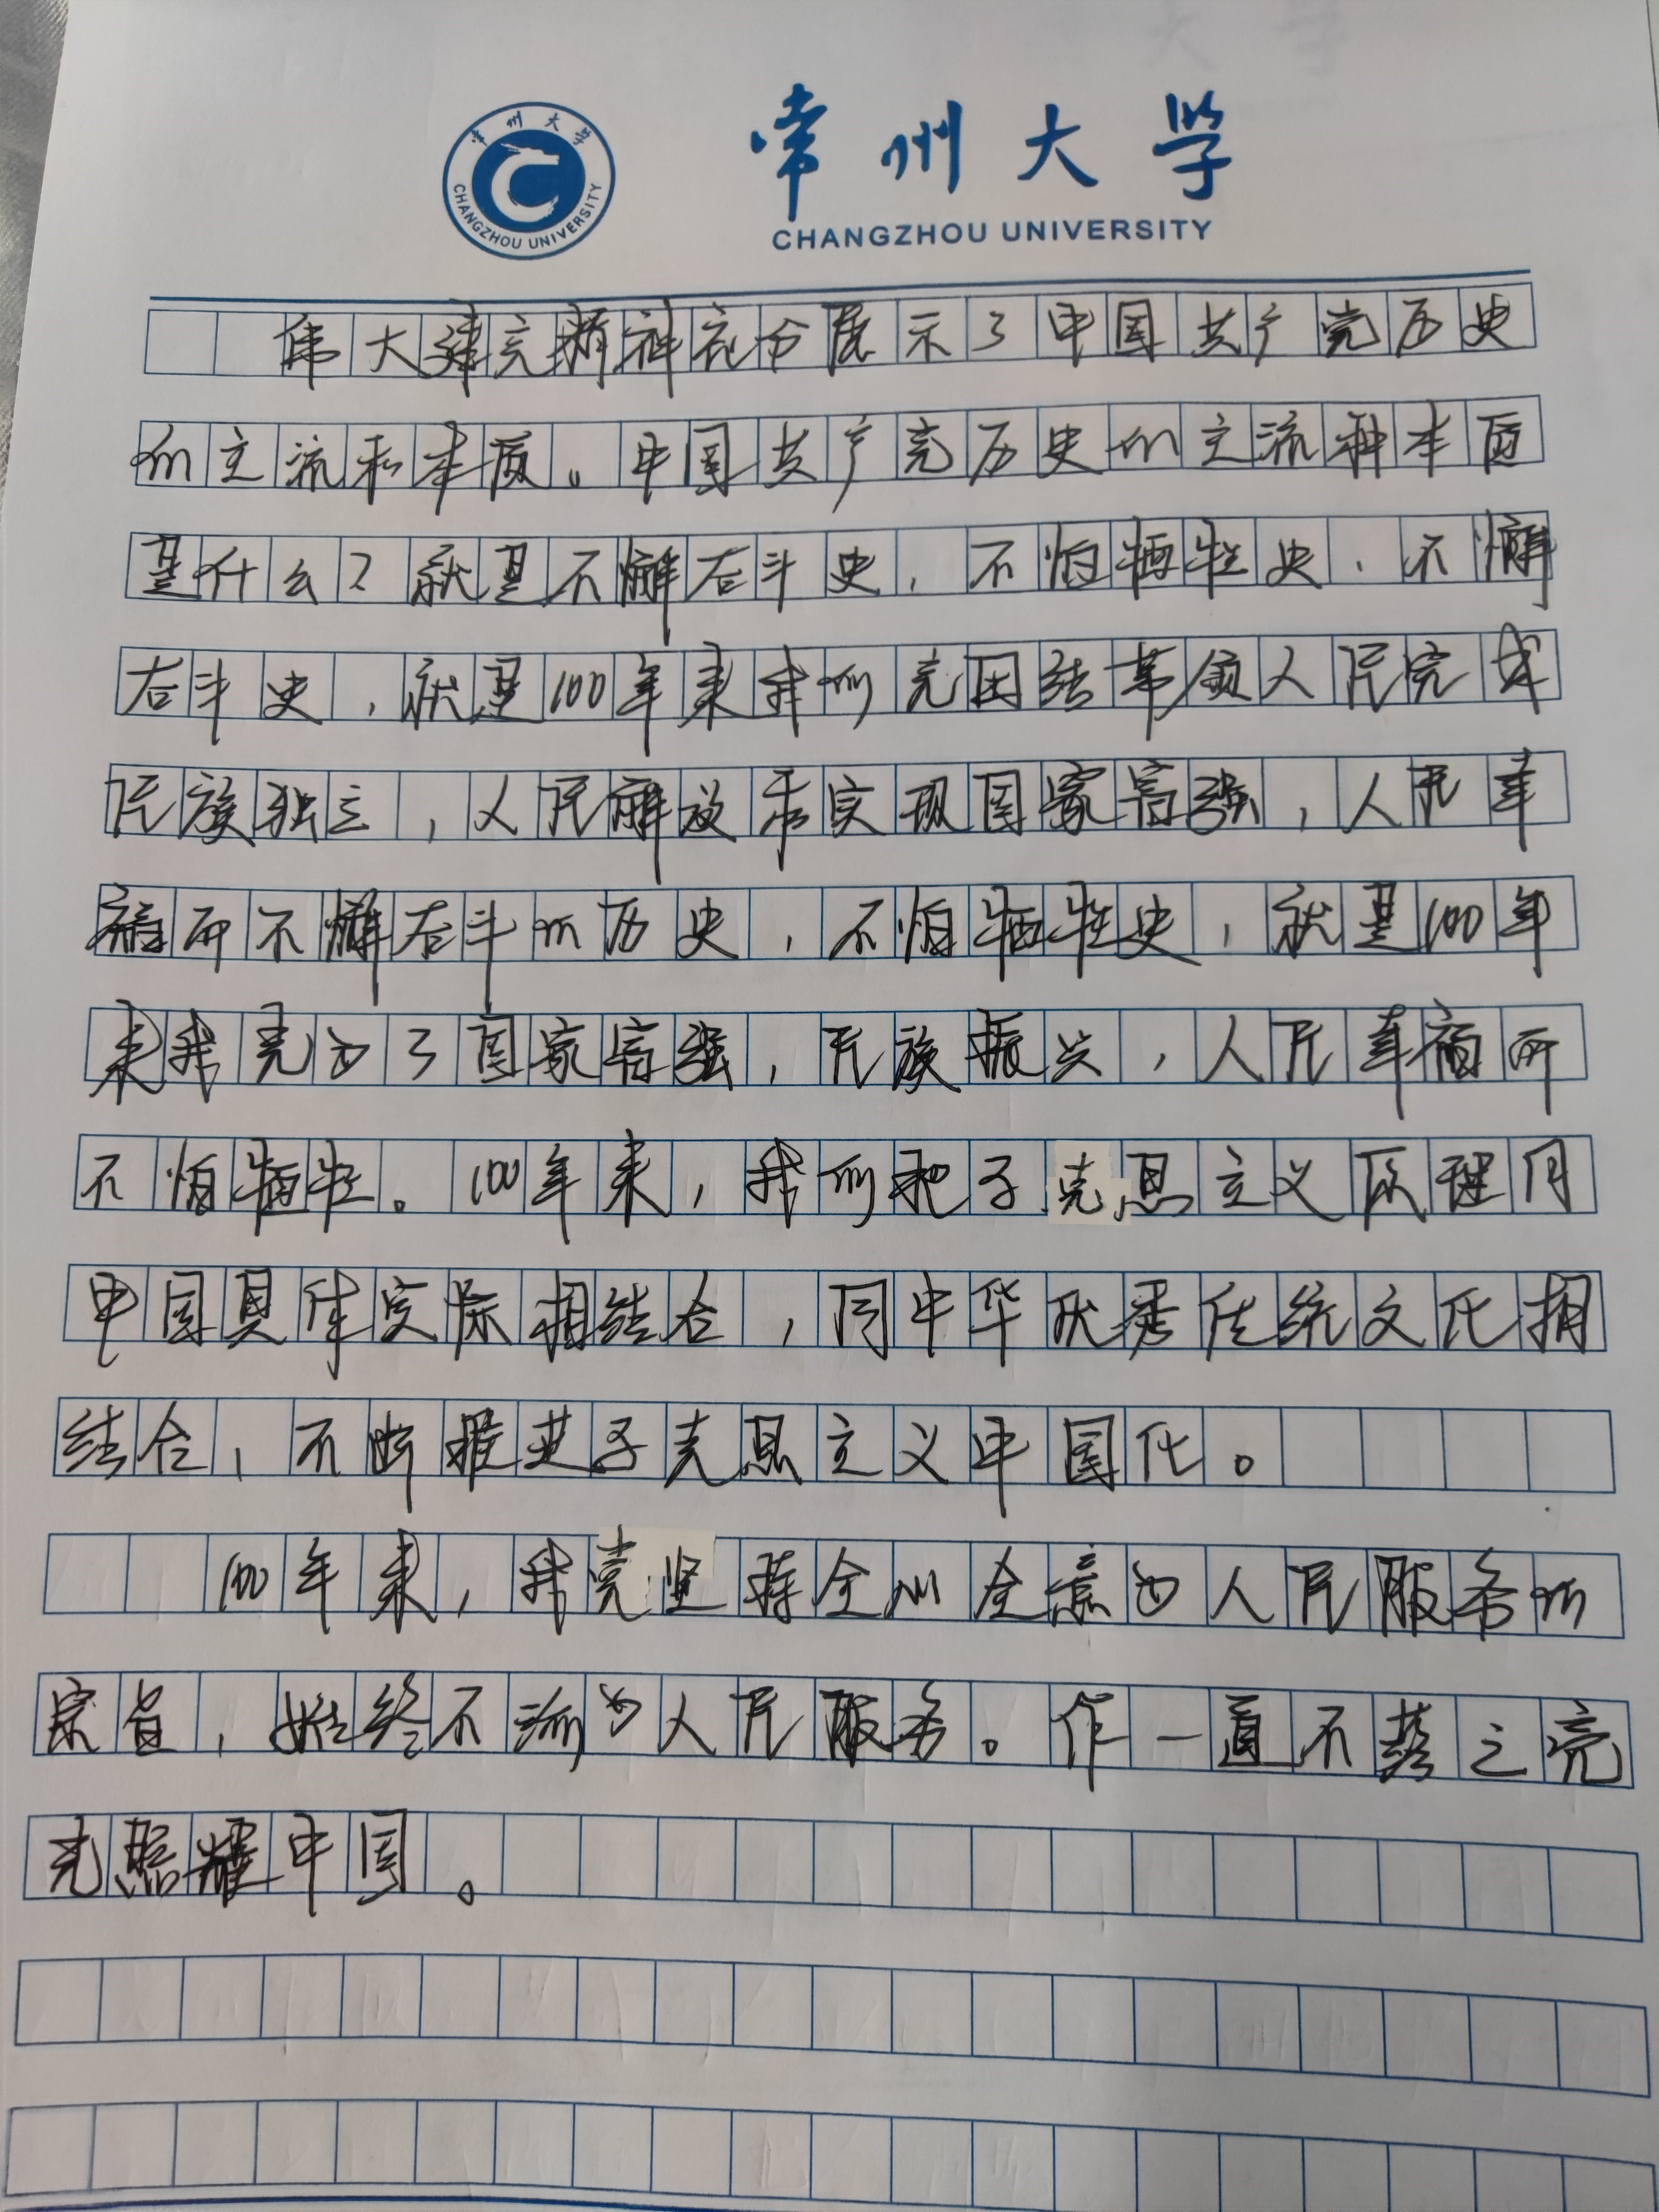 常州大学
CHANGZHOU UNIVERSITY
常州大学
CHANGZHOU UNIVERSITY
伟大建党精神充分展示了中国共产党历史
的主流和本质。中国共产党历史的主流和本质
是什么？就是不懈奋斗史，不怕牺牲史，不懈
奋斗史，就是100年来我们党团结带领人民完成
民族独立，人民解放和实现国家富强，人民幸
福而不懈奋斗的历史，不怕牺牲史，就是100年
来我党为了国家富强，民族振兴，人民幸福而
不怕牺牲。100年来，我们把马克思主义原理同
中国具体实际相结合，同中华优秀传统文化相
结合，不断推进马克思主义中国化。
100年来，我党坚持全心全意为人民服务的
宗旨，始终不渝为人民服务。作一直不禁之亮
光照耀中国。